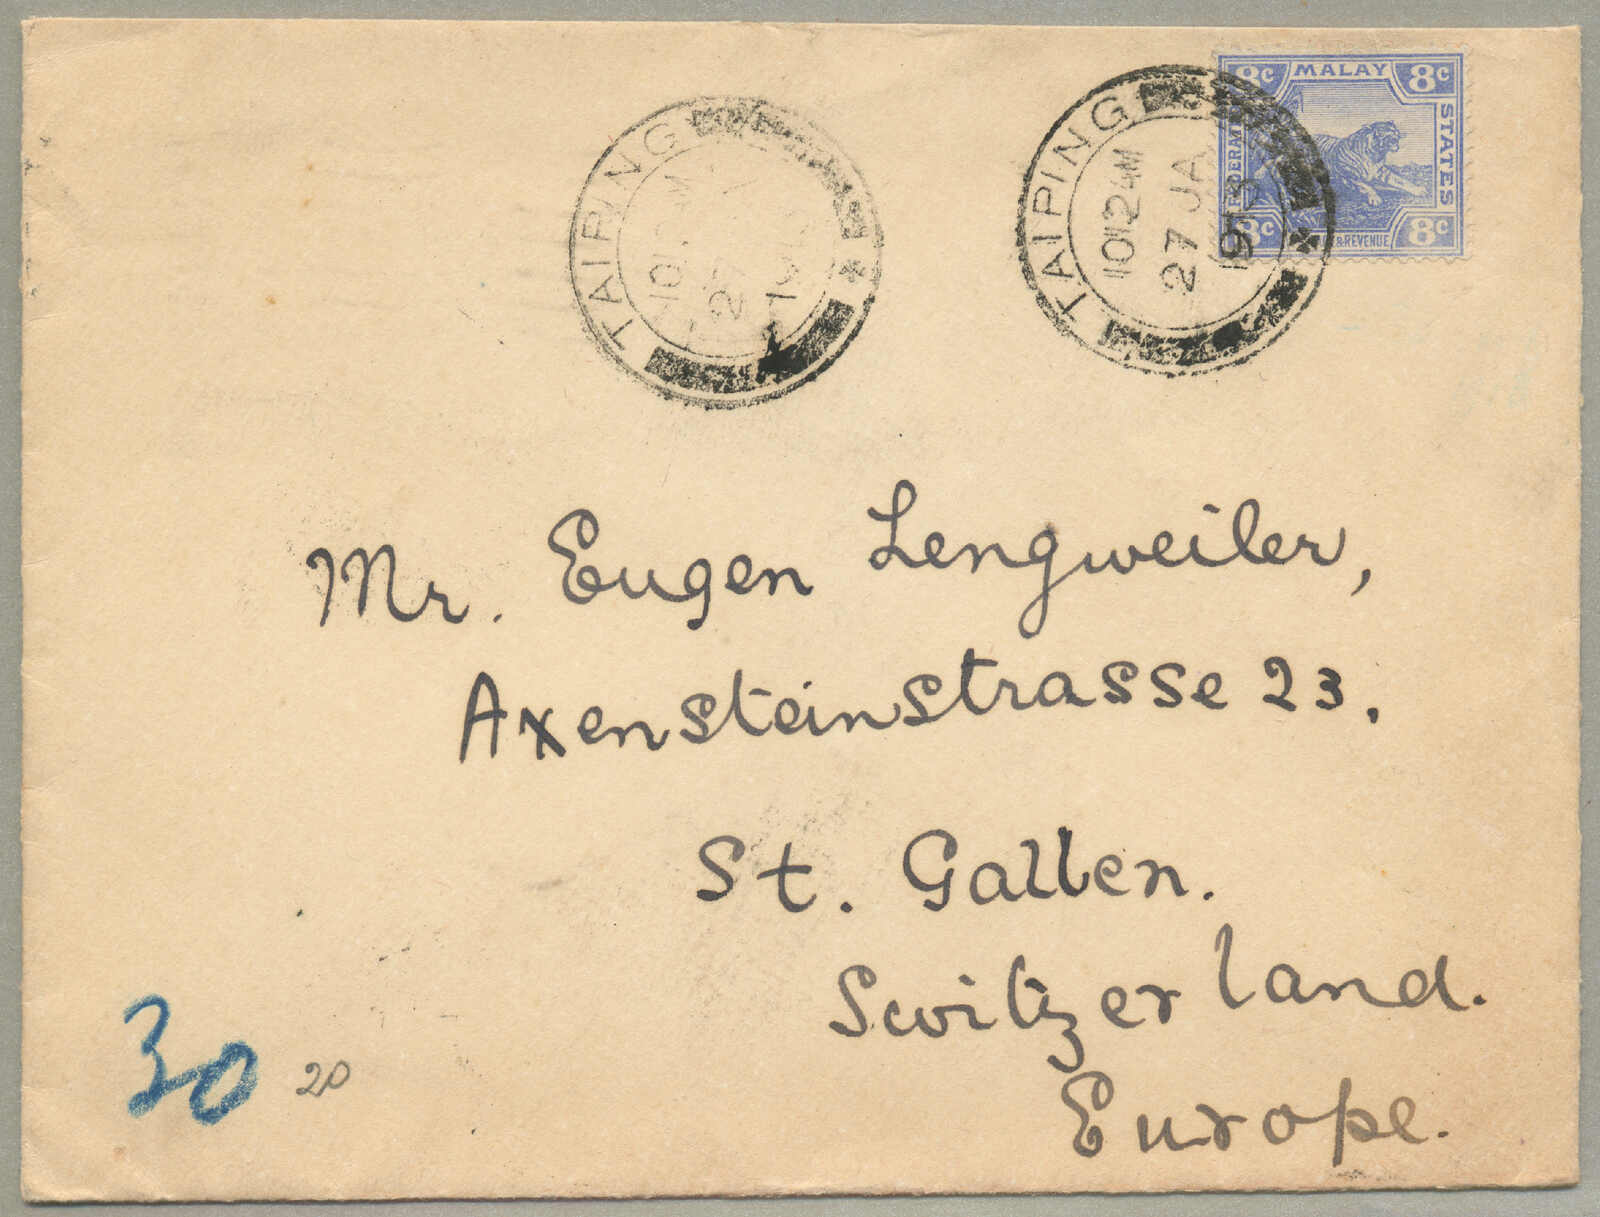 TAIPING
TAIPING
10112 4M
27 JA
1913
8c MALAY 8c
FEDERATED
STATES
8c & REVENUE 8c
Mr. Eugen Lengweiler,
Axensteinstrasse 23.
St. Gallen.
Switzerland.
Europe.
30 20